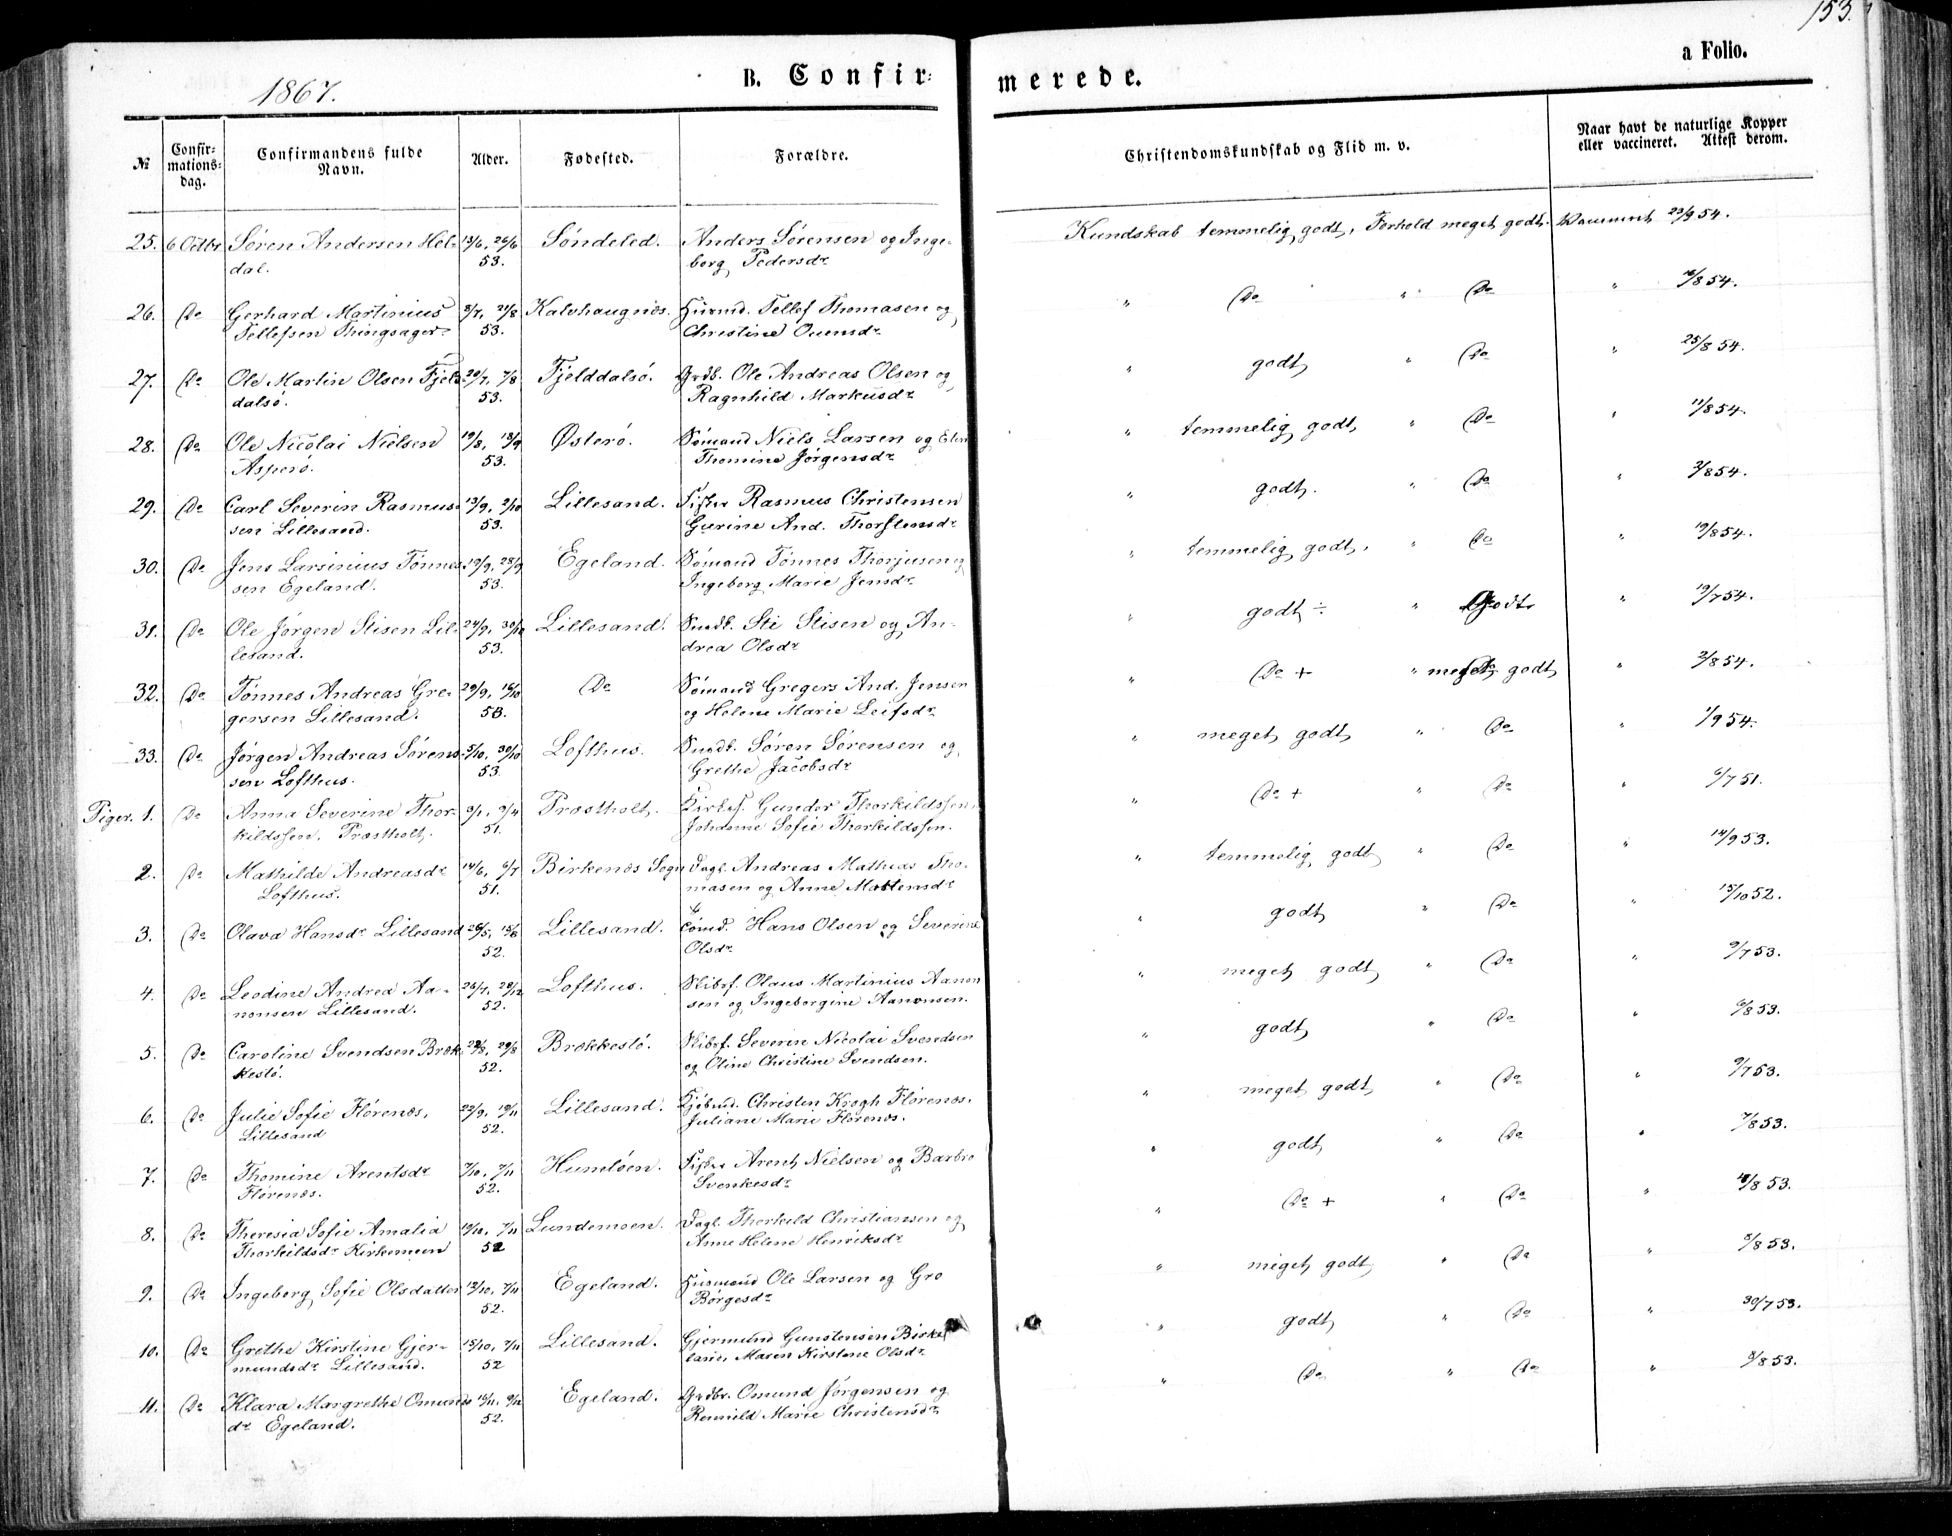 153.
a Folio.
1867.
B. Confir-
merede.
№
Confir-
mations-
dag.
Confirmandens fulde
Navn.
Alder.
Fødested.
Forældre.
Christendomskundskab og Flid m. v.
Naar havt de naturlige Kopper
eller vaccineret. Attest derom.
25. 6 Octbr Søren Andersen Hel- 13/6, 26/6 Søndeled. Anders Sørensen og Inge- Kundskab temmelig godt, Forhold meget godt. 23/9 54.
dal. 53. borg Pedersdr
26. Do Gerhard Martinius 3/7, 21/8 Kalvhaugnæs. Husmd. Tellef Thomasen og " Do " Do " /8 54.
Tellefsen Thingsager 53. Christine
27. Do Ole Martin Olsen Fjeld- 29/7, 7/8 Fjelddalsø. Grdb. Ole Andreas Olsen og " godt " Do " 25/8 54.
dalsø. 53. Ragnhild Markusdr
28. Do Ole Nicolai Nielsen 19/8, 13/9 Østerø. Sømand Niels Larsen og Elen " temmelig godt, " Do " 11/8 54.
Asperø. 53. Thomine Jørgensdr
29. Do Carl Severin Rasmus- 13/9, 2/10 Lillesand. Fisker Rasmus Christensen " godt. " Do " 3/8 54.
sen Lillesand. 53. Gurine And. Thorstensdr
30. Do Jens Larsinius Tønnes- 19/9, 28/9 Egeland. Sømand Tønnes Thorjusen og " temmelig godt, " Do " 19/8 54.
sen Egeland. 53. Ingeborg Marie Jensdr
31. Do Ole Jørgen Stisen Lil- 24/9, 30/10 Lillesand. Sti Stisen og An- " godt ÷ " Godt. " 19/7 54.
lesand. 53. drea Olsdr
32. Do Tønnes Andreas Gre- 29/9, 16/10 Do Sømand Gregers And. Jensen " Do + " meget godt " 2/8 54.
gersen Lillesand. 53. og Helene Marie Leifsdr
33. Do Jørgen Andreas Sørens- 5/10, 30/10 Lofthus. Søren Sørensen og " meget godt " Do " 1/9 54.
sen Lofthus. 53. Grethe Jacobsdr
Piger. 1. Do Anna Severine Thor- 3/1, 9/4 Præstholt. Gunder Thorkildssen " Do + " Do " 6/7 51.
kildssen. Præstholt. 51. Johanne Sofie Thorkildssen.
2. Do Mathilde Andreasdr 14/6, 6/7 Birkenæs Sogn Dagl. Andreas Mathias Tho- " temmelig godt " Do " 14/9 53.
Lofthus. 51. masen og Anne Mortensdr
3. Do Olava Hansdr Lillesand 26/5, 15/8 Lillesand. Sømd. Hans Olsen og Severine " godt " Do " 15/10 52.
52. Olsdr
4. Do Leodine Andrea Aa- 26/7, 28/12 Lofthus. Skibsf. Olaus Martinius Aanon " meget godt " Do " 9/7 53.
nonsen Lillesand. 52. sen og Ingeborgine Aanonsen.
5. Do Caroline Svendsen Bræk- 29/8 Brækkestø. Skibsf. Severin Nicolai Svendsen " godt " Do " 6/8 53.
kestø. 52. og Oline Christine Svendsen.
6. Do Julie Sofie Flørenæs, 22/9, 19/11 Lillesand. Kjøbmd. Christen Krogh Flørenæs. " meget godt, " Do " 9/7 53.
Lillesand 52. Juliane Marie Flørenæs.
7. Do Thomine Arentsdr 7/10, 7/11 Humløen. Fisker Arent Nielsen og Barbro " godt " Do " 7/8 53.
Flørenæs. 52. Svenkesdr
8. Do Theresia Sofie Amalia 19/10, 7/11 Lundemoen. Dagl. Thorkild Christiansen og " Do + " Do " /8 53.
Thorkildsdr Kirkemoen 52 Anne Helene Henriksdr
9. Do Ingeborg Sofie Olsdatter 13/10, 7/11 Egeland. Husmand Ole Larsen og Gro " meget godt " Do " 5/8 53.
52. Børgesdr
10. Do Grethe Kirstine Gjer- 15/10, 7/11 Lillesand. Gjermund Gunstensen Birke " godt " Do " 30/7 53.
mundsdr Lillesand. 52 land, Maren Kirstine Olsdr
11. Do Klara Margrethe Omunds 15/11, 9/12 Egeland. Grdbr. Omund Jørgensen og " Do " Do " 5/8 53.
dr Egeland. 52. Marie Christensdr